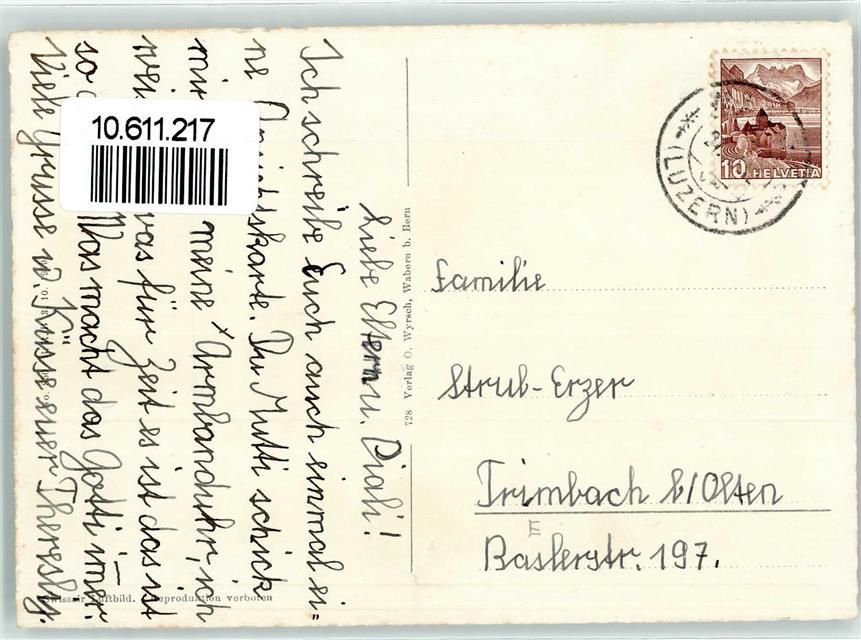 Liebe Eltern u. Diali!
Ich schreibe Euch auch einmal ei=
ne Ansichtskarte. Du Mutti schick
mir meine Armbanduhr, ich
was für Zeit es ist das ist
so Was macht das Gotti imer.
Viele Grüsse u. Küsse euer Theresly.
10.611.217
728 Verlag O. Wyrsch, Wabern b. Bern
Swissair Luftbild. Reproduktion verboten
10 HELVETIA
(LUZERN)
Familie
Strub-Erzer
Trimbach b/Olten
E
Baslerstr. 197.